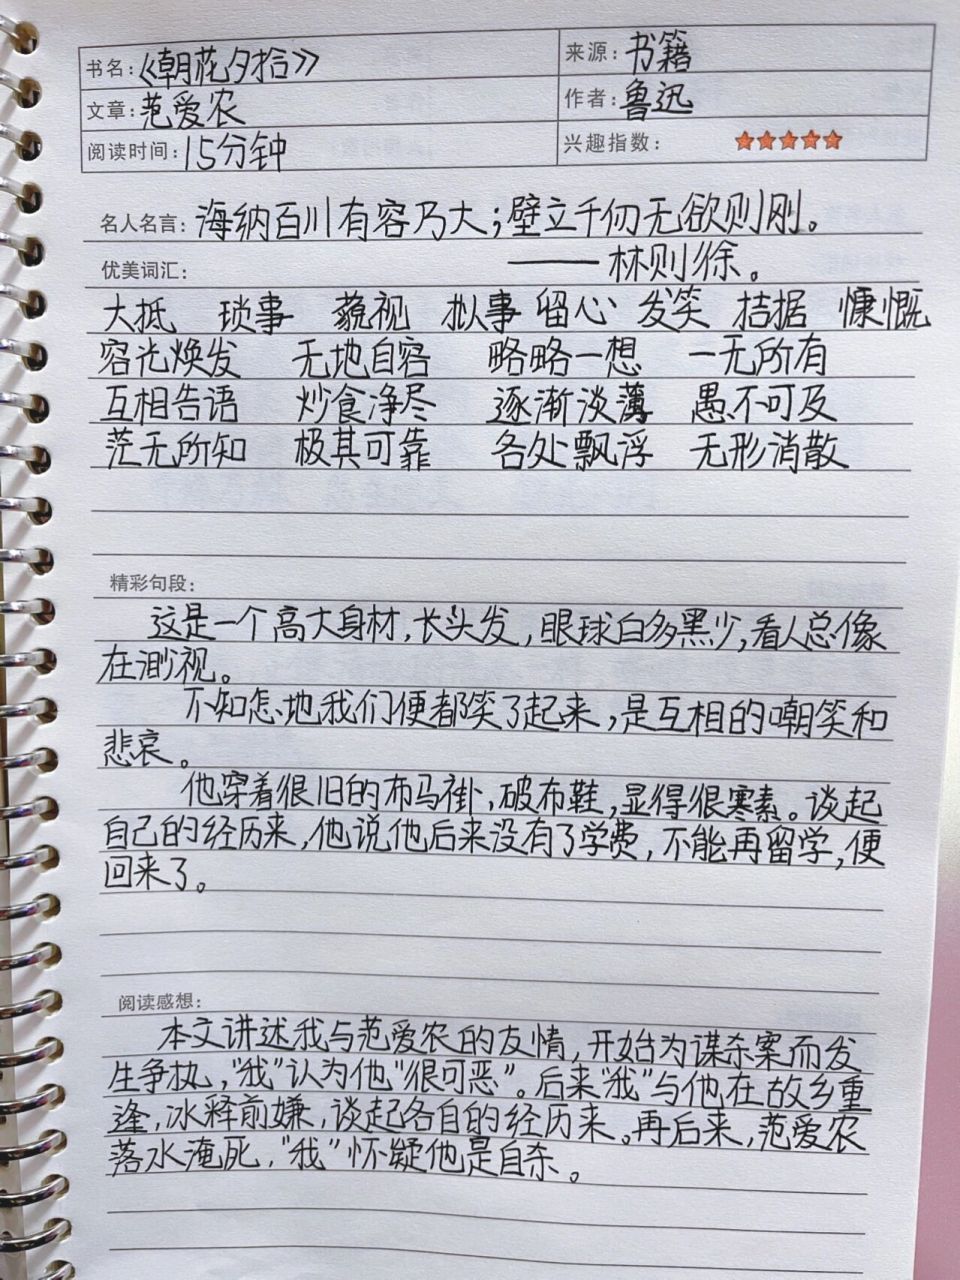 书名:《朝花夕拾》 来源: 书籍
文章: 范爱农 作者: 鲁迅
阅读时间: 15分钟 兴趣指数:
名人名言: 海纳百川有容乃大;壁立千仞无欲则刚。
优美词汇: ——林则徐。
大抵 琐事 藐视 拟事 留心 发笑 拮据 慷慨
容光焕发 无地自容 略略一想 一无所有
互相告语 炒食净尽 逐渐淡薄 愚不可及
茫无所知 极其可靠 各处飘浮 无形消散
精彩句段:
这是一个高大身材,长头发,眼球白多黑少,看人总像
在渺视。
不知怎地我们便都笑了起来,是互相的嘲笑和
悲哀。
他穿着很旧的布马褂,破布鞋,显得很寒素。谈起
自己的经历来,他说他后来没有了学费,不能再留学,便
回来了。
阅读感想:
本文讲述我与范爱农的友情,开始为谋杀案而发
生争执,"我"认为他"很可恶"。后来"我"与他在故乡重
逢,冰释前嫌,谈起各自的经历来。再后来,范爱农
落水淹死,"我"怀疑他是自杀。